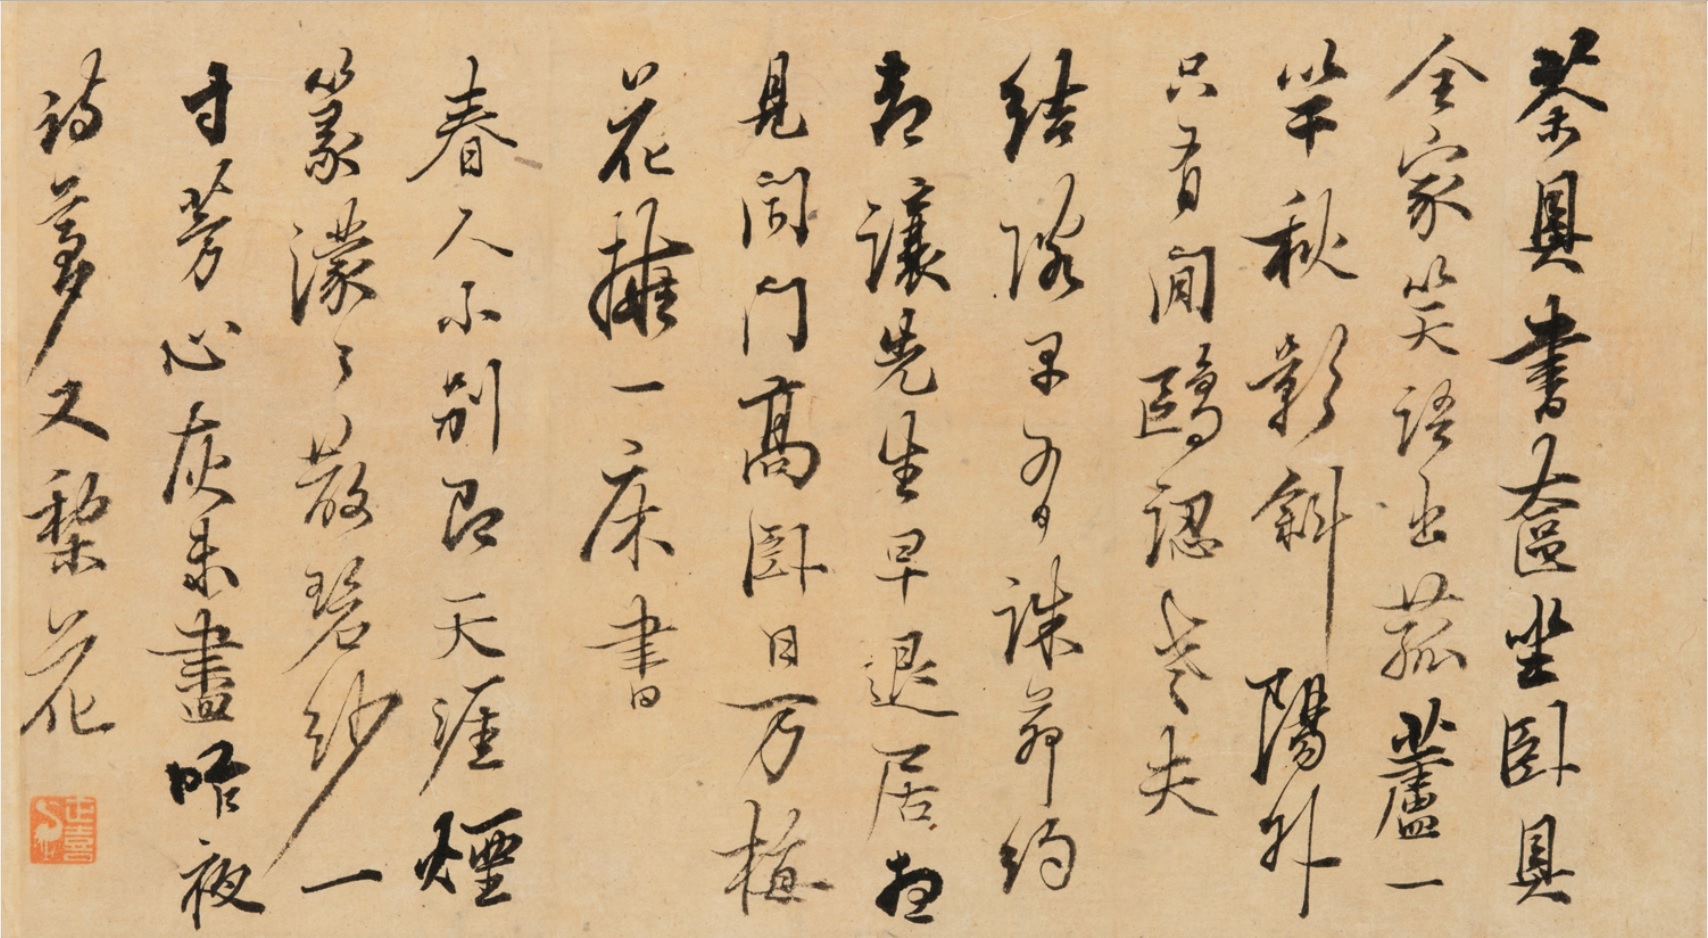 茶具書奩坐臥具
全家笑語出菰蘆一
竿秋影斜陽外
只有閒鷗認老夫
結隣早有誅茅約
讓先生早退居想
見閉門高臥日万梅
花擁一床書
春人小別即天涯煙
篆濛々散碧紗一
寸芳心灰未盡昨夜
詩夢又梨花